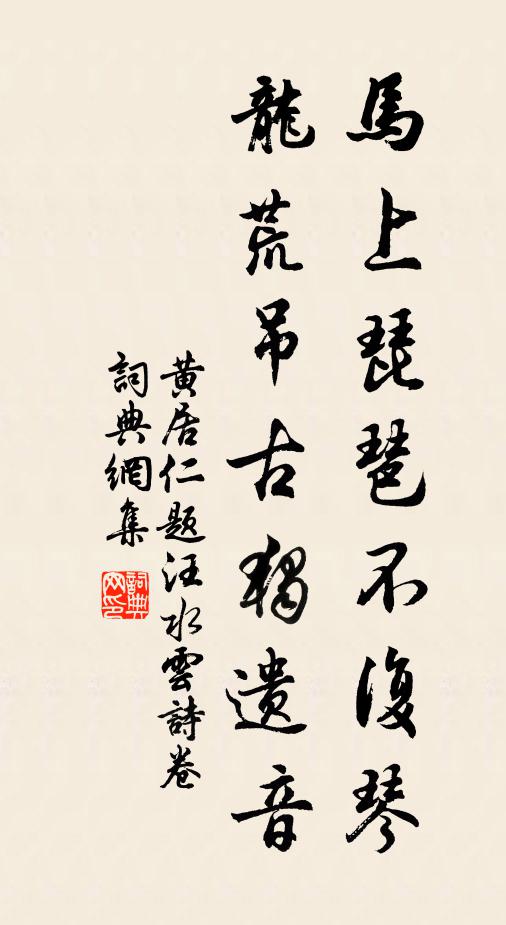 馬上琵琶不復琴
龍荒吊古獨遺音
黄居仁題汪水雲詩卷
詞典網集
詞典網印